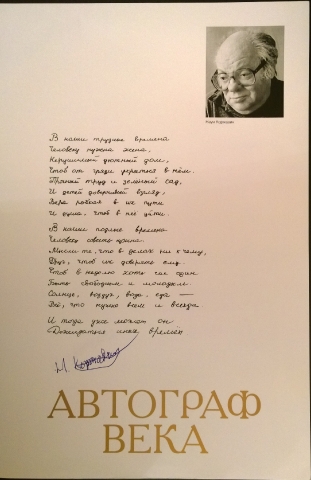 Наум Коржавин
В наши трудные времена
Человеку нужна жена,
Нерушимый уютный дом,
Чтоб от грязи укрыться в нём.
Прочный труд и зелёный сад,
И детей доверчивый взгляд,
Вера робкая в их пути
И душа, чтоб в неё уйти.
В наши подлые времена
Человеку совесть нужна.
Мысли те, что в делах ни к чему,
Друг, чтоб их доверять ему.
Чтоб в неделю хоть час один
Быть свободным и молодым.
Солнце, воздух, вода, еда —
Всё, что нужно всем и всегда.
И тогда уже может он
Дожидаться иных времён
Н. Коржавин
АВТОГРАФ
ВЕКА